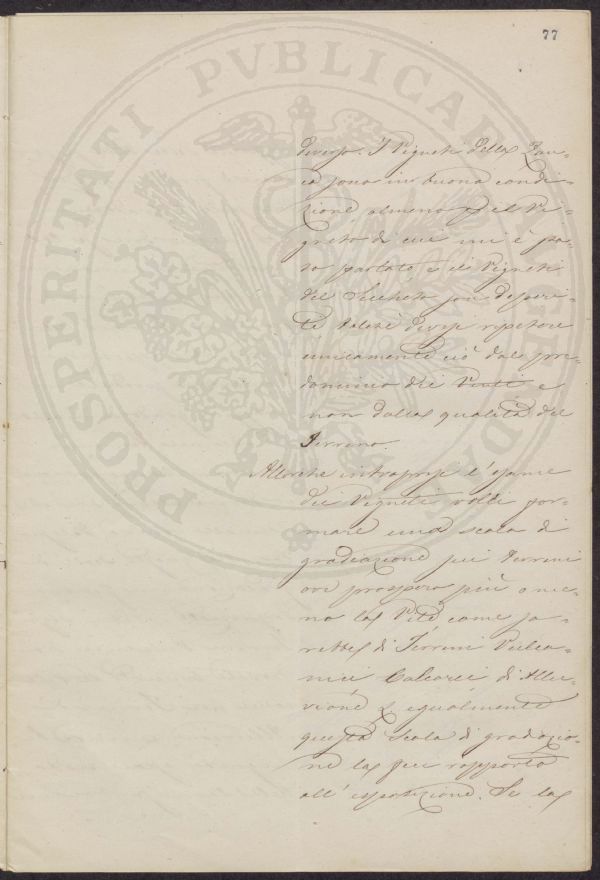 77
diverso. I Vigneti della Zau-
ca sono in buona condi-
zione almeno per il Vi-
gneto di cui mi è sta-
to parlato, e i Vigneti
del Seccheto son deperi-
ti talchè devesi ripetere
unicamente ciò dal pre-
dominio dei Venti e
non dalla qualità del
Terreno.
Allorchè intrapresi l'esame
dei Vigneti volli for-
mare una scala di
gradazione sui terreni
ove prospera più o me-
no la Vite come sa-
rebbe di Terreni Vulca-
nici Calcarei di Allu-
vione e egualmente
questa scala di gradazio-
ne la feci rapporto
all'esposizione. Se la
PROSPERITATI PVBLICAE AVGENDAE